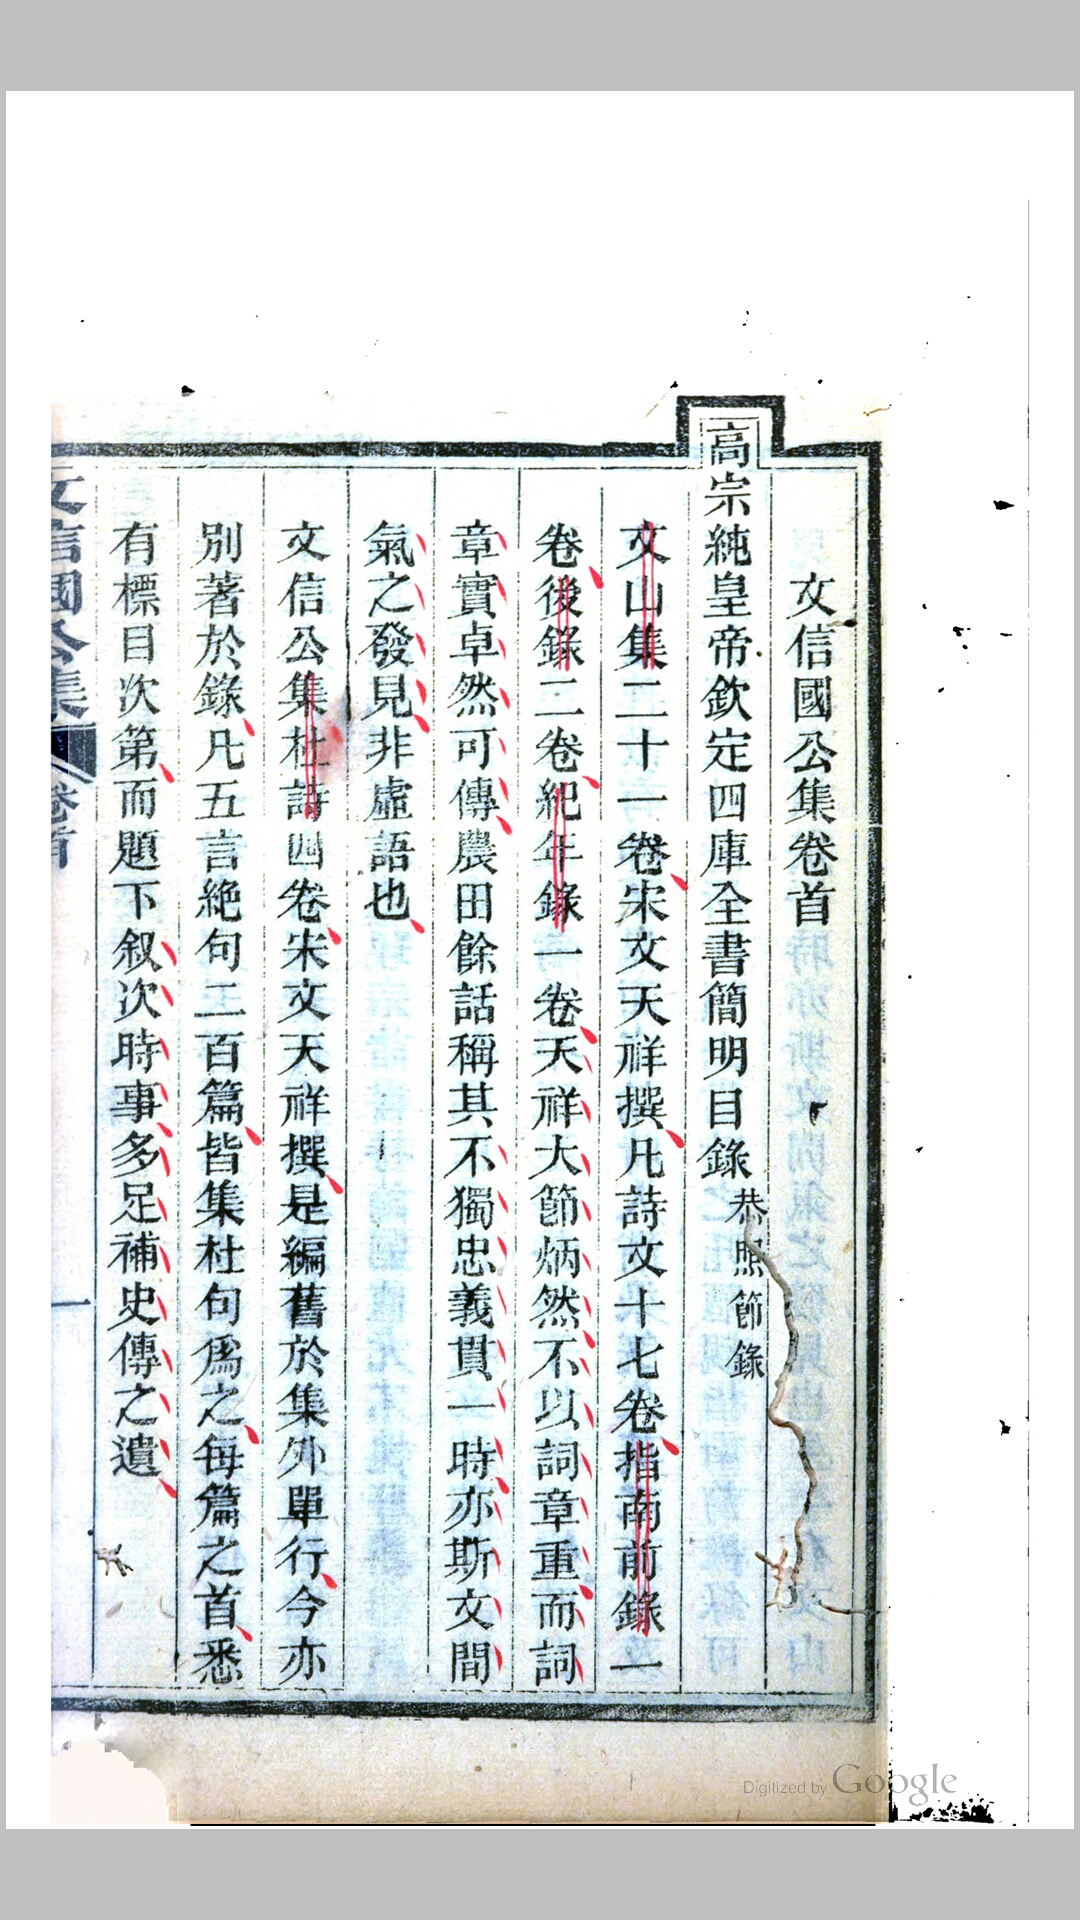 文信國公集卷首
高宗純皇帝欽定四庫全書簡明目錄恭照節錄
文山集二十一卷宋文天祥撰凡詩文十七卷指南前錄一
卷後錄二卷紀年錄一卷天祥大節炳然不以詞章重而詞
章實卓然可傳農田餘話稱其不獨忠義貫一時亦斯文間
氣之發見非虛語也
文信公集杜詩四卷宋文天祥撰是編舊於集外單行今亦
別著於錄凡五言絶句二百篇皆集杜句爲之每篇之首悉
有標目次第而題下叙次時事多足補史傳之遺
文信國公集 卷首 一
Digitized by Google